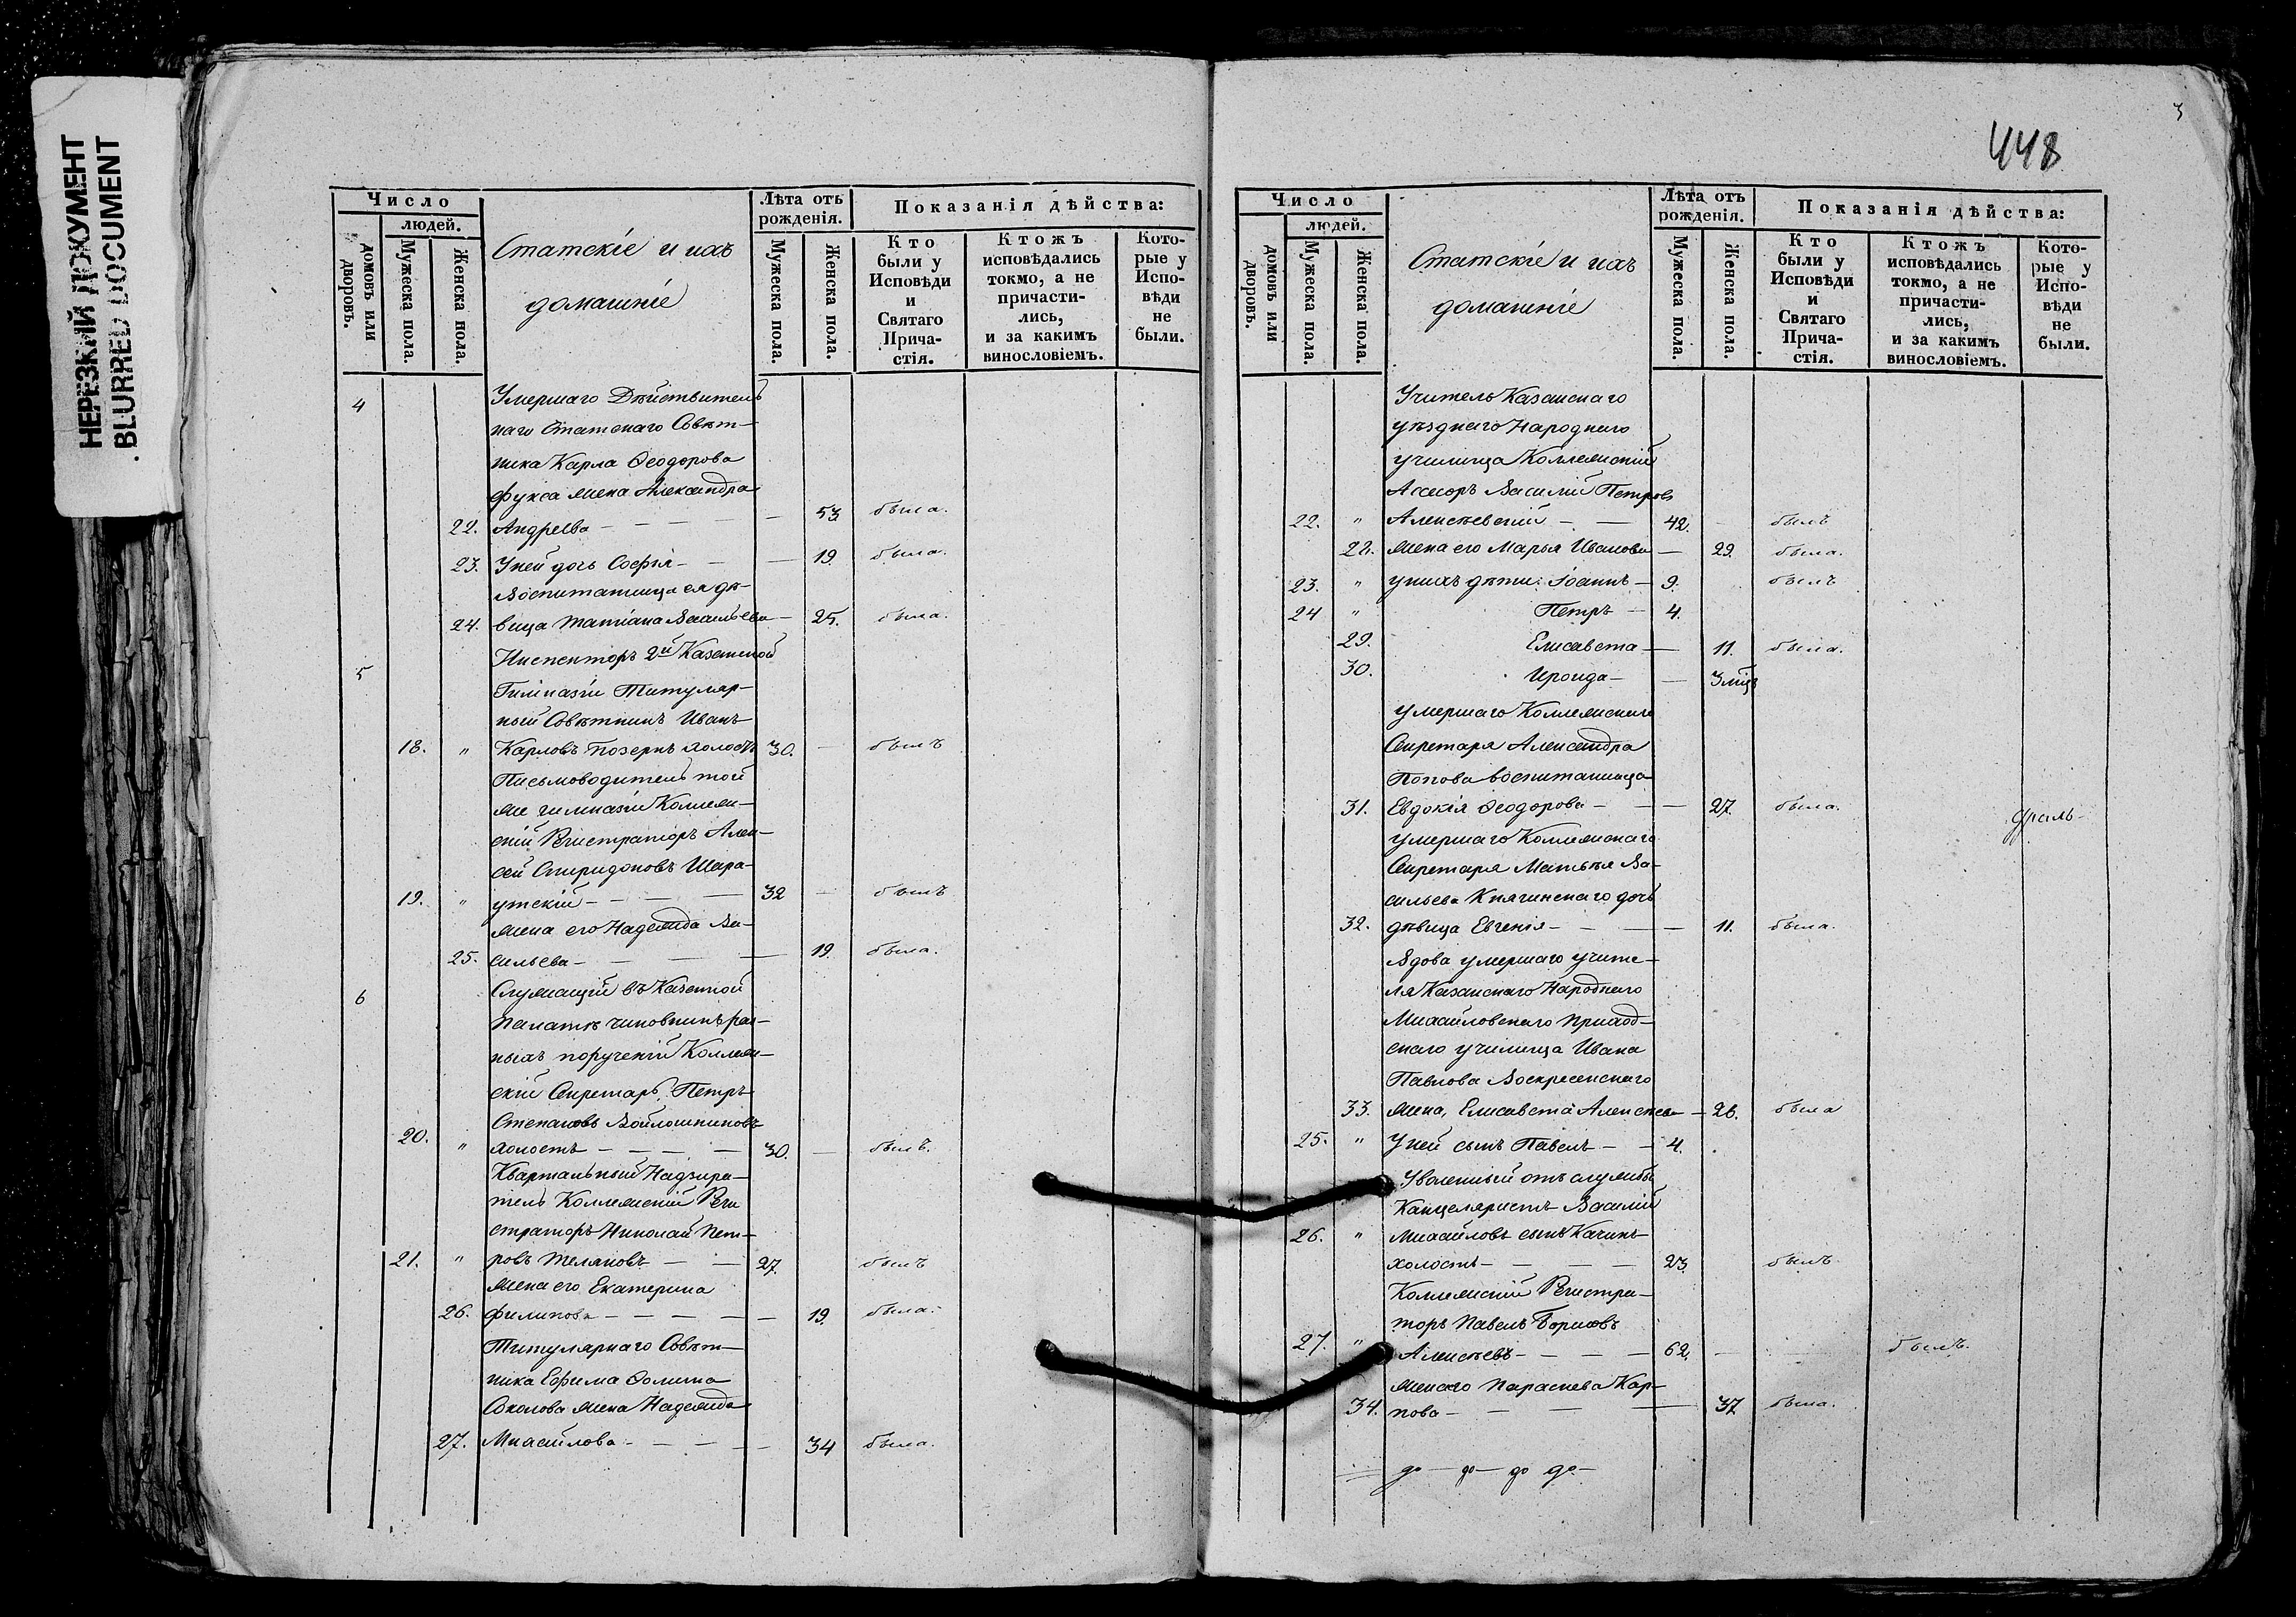 НЕРЕЗКИЙ ДОКУМЕНТ
BLURRED DOCUMENT
3
448
Число
людей.
домовъ или дворовъ.
Мужеска пола.
Женска пола.
Статскіе и ихъ
домашніе
Лѣта отъ рожденія.
Мужеска пола.
Женска пола.
Показанія дѣйства:
Кто были у Исповѣди и Святаго Прича-стія.
Ктожъ исповѣдались токмо, а не причасти-лись, и за какимъ винословіемъ.
Кото-рые у Испо-вѣди не были.
4 Умершаго Дѣйствитель
наго Статскаго Совѣт-
ника Карла Ѳеодорова
Фукса жена Александра
22. Андреева - - - - - 53 была.
23. У ней дочь Софія - - - 19. была.
Воспитанница ея дѣ-
24. вица Татіана Васильева - 25. была.
5 Инспекторъ 2й Казанской
Гимназіи Титуляр-
ный Совѣтникъ Иванъ
18. " Карловъ Позернъ холостъ 30. - былъ
Письмоводитель той
же гимназіи Коллеж-
скій Регистраторъ Алек-
сѣй Спиридоновъ Шара-
19. " утскій - - - - 32 - былъ
жена его Надежда Ва-
25. сильева - - - - 19. была.
6 Служащій въ Казенной
Палатѣ чиновникъ раз-
ныхъ порученій Коллеж-
скій Секретарь, Петръ
Степановъ Войлошниковъ
20. " холостъ - - - - - 30. - былъ.
Квартальный Надзира-
тель Коллежскій Реги
страторъ Николай Пет-
21. " ровъ Теляновъ - - 27. былъ
жена его Екатерина
26. Филипова - - - - - 19. была.
Титулярнаго Совѣт-
ника Ефима Ѳомина
Соколова жена Надежда
27. Михайлова - - - - - 34 была.
Число
людей.
домовъ или дворовъ.
Мужеска пола.
Женска пола.
Статскіе и ихъ
домашніе
Лѣта отъ рожденія.
Мужеска пола.
Женска пола.
Показанія дѣйства:
Кто были у Исповѣди и Святаго Прича-стія.
Ктожъ исповѣдались токмо, а не причасти-лись, и за какимъ винословіемъ.
Кото-рые у Испо-вѣди не были.
Учитель Казанскаго
уѣзднаго Народнаго
училища Коллежскій
Ассесоръ Василій Петровъ
22. " Алексѣевскій - - 42. - былъ
22. жена его Марья Иванова - 29. была.
23. " у нихъ дѣти: Іоаннъ - 9. былъ
24 " Петръ - 4.
29. Елисавета - 11. была.
30. Ироида - - 3 мѣц
умершаго Коллежскаго
Секретаря Александра
Попова воспитанница
31. Евдокія Ѳеодорова - - - 27. была.
умершаго Коллежскаго
Секретаря Матвѣя Ва-
сильева Княгинскаго дочь
32. дѣвица Евгенія - - - - 11. была.
Вдова умершаго учите-
ля Казанскаго Народнаго
Михайловскаго Приход-
скаго училища Ивана
Павлова Воскресенскаго
33. жена, Елисавета Алексѣева - 26. была
25. " У ней сынъ Павелъ - - 4.
Уволенный отъ службы
Канцеляристъ Василій
26. " Михайловъ сынъ Качинъ
холостъ - - - - 23. былъ
Коллежскій Регистра-
торъ Павелъ Борисовъ
27. " Алексѣевъ - - - - 62. - - былъ.
жена его Параскева Кар-
34. пова - - - - 37 была.